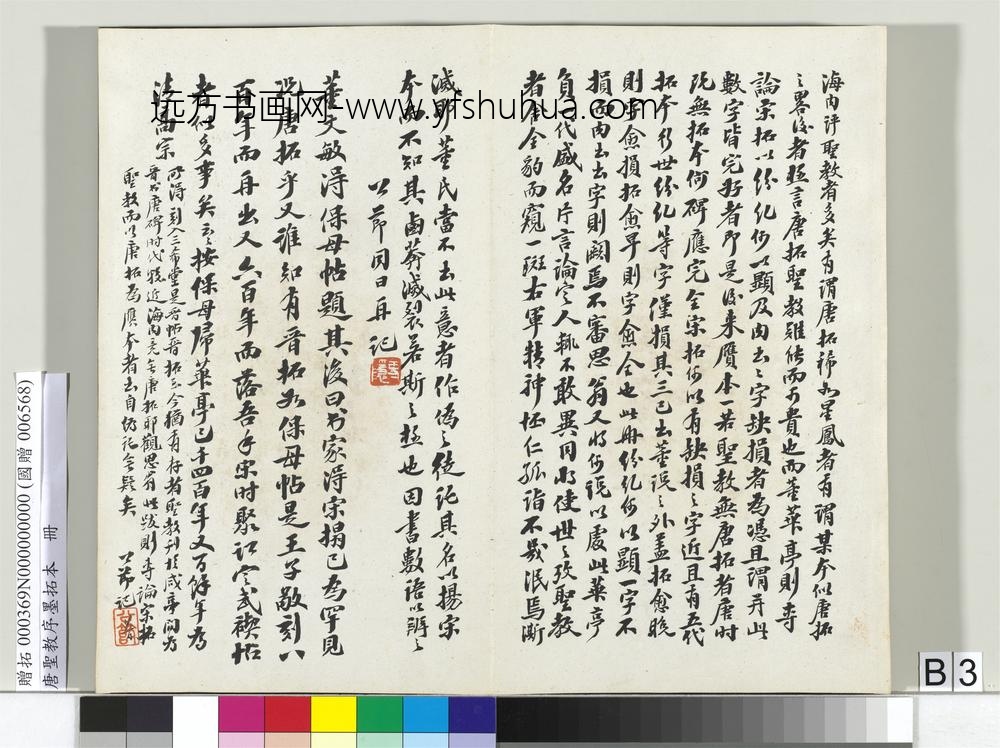 海內評聖教者多矣有謂唐拓稀如星鳳者有謂某本似唐拓
之畧後者極言唐拓聖教雖絕而不貴也而董華亭則專
論宋拓以紛糺何以顯及內出之字缺損者為憑且謂并此
數字皆完好者即是後來贋本一若聖教無唐拓者唐時
既無拓本何碑應完全宋拓何以有缺損之字近且有五代
拓本行世紛糺等字僅損其三已出董說之外蓋拓愈晚
則字愈損拓愈早則字愈全也此冊紛糺何以顯一字不
損而內出出字則闕焉不審思翁又將何說以處此華亭
負一代盛名片言論定人輒不敢異同將使世之孜聖教
者棄全豹而窺一斑右軍精神怀仁孤詣不幾泯焉漸
滅耶董氏當不出此意者作偽之徒託其名以揚宋
本而不知其鹵莽滅裂若斯之極也因書數語以辨之
公節同日再記
董文敏得保母帖題其後曰书家得宋搨已為罕見
況唐拓乎又誰知有晉拓如保母帖是王子敬刻八
百年而再出又六百年而落吾手宋時聚訟定武禊帖
者似多事矣云云按保母歸華亭已千四百年又百餘年為
法商宗
所得刻入三希堂是晉帖晉拓至今猶有存者聖教刊於咸亨間為
晉书唐碑时代較近海內竟無唐拓耶觀思翁此跋則專論宋拓
聖教而以唐拓為贋本者出自仿託無疑矣
公節記
远方书画网-www.yfshuhua.com
贈拓 000369N000000000 (國贈 006568)
唐聖教序墨拓本 冊
B 3